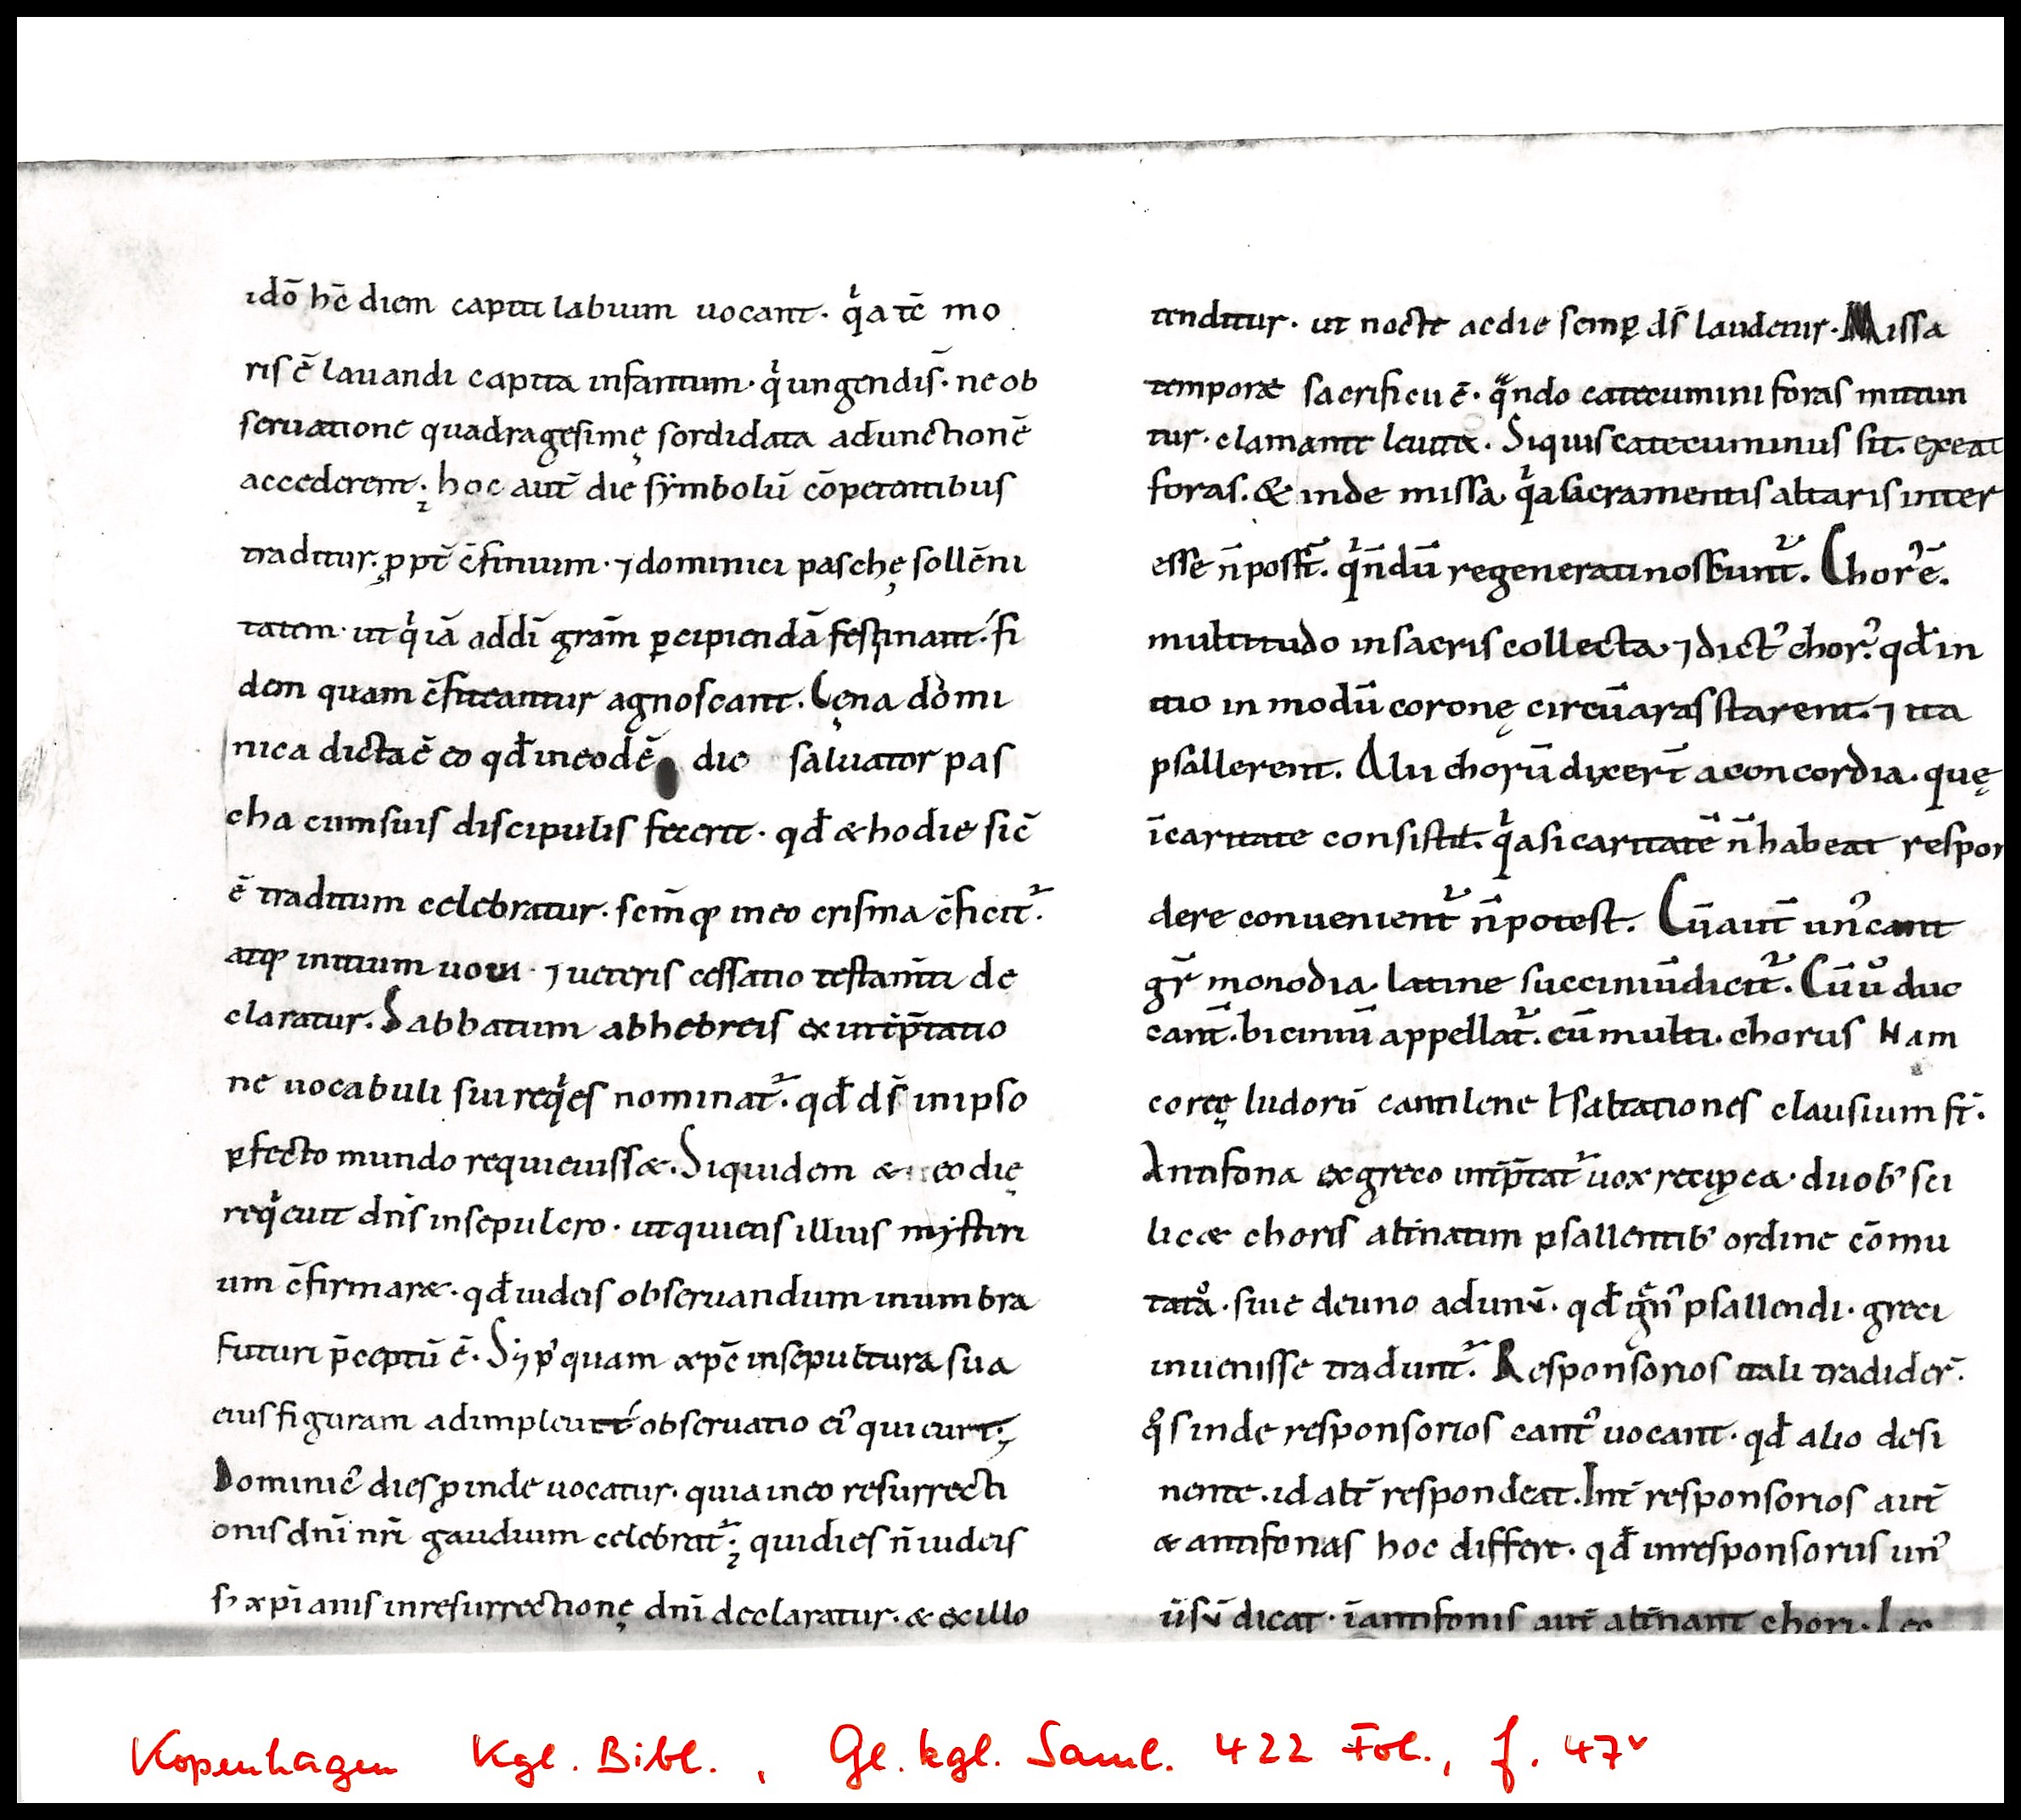 idō hē diem capitilabium uocant. qͥa tē mo
ris ē lauandi capita infantum. qͥ ungendi s̄. ne ob
seruatione quadragesimę sordidata ad unctionē
accederent; hoc aut̄ die sẏmbolū cōpetentibus
traditur. ꝓpt̄ c̄finium. ⁊ dominici paschę sollēni
tatem. ut qͥ iā ad dī gr̄am ꝑcipiendā festinant. fi
dem quam c̄fiteantur agnoscant. Cęna domi
nica dicta ē eo qd̄ in eodē die saluator pas
cha cum suis discipulis fecerit. qd̄ & hodie sic̄
ē traditum celebratur. sem̄qꝫ in eo crisma c̄ficit᷑.
atqꝫ initium noui. ⁊ ueteris cessatio testam̄ti de
claratur. Sabbatum ab hebreis ex int̄p̄tatio
ne uocabuli sui reqͥes nominat᷑. qd̄ ds̄ in ipso
ꝑfecto mundo requieuiss&. Siquidem & eo die
reqͥeuit dn̄s in sepulcro. ut quietis illius mẏsteri
um c̄firmar&. qd̄ iudeis obseruandum in umbra
futuri p̄ceptū ē. Sꝫ pꝰquam xp̄c in sepultura sua
eius figuram adimpleuit obseruatio eiꝰ quieurt;
Dominicꝰ dies ꝓinde uocatur. quia in eo resurrecti
onis dn̄i nr̄i gaudium celebrat᷑; qui dies n̄ iudeis
sꝫ xp̄ianis in resurrectionę dn̄i declaratur. & ex illo
tenditur. ut nocte ac die semꝑ ds̄ laudetur. Missa
tempor& sacrificii ē. qͣndo catecumini foras mittun
tur. clamante leuita. Siquis catecuminus sit. exeat
foras. & inde missa. qͥa sacramentis altaris inter
esse n̄ poss̄t. qͥ n̄dū regenerati noscunt᷑. Chorꝰ ē.
multitudo in sacris collecta. ⁊ dictꝰ chorꝰ. qd̄ in
itio in modū coronę circū aras starent. ⁊ ita
psallerent. Alii chorū dixer̄t a concordia. quę
ī caritate consistit. qͥa si caritatē n̄ habeat respon
dere conuenient᷑ n̄ potest. Cū aut̄ unꝰ cant
gr̄ monodia. latine siccinium dicit᷑. Cū ů duo
cant̄. biciniū appellat᷑. cū multi. chorus Nam
coreę ludorū cantilene ƚ saltationes clausium st̄.
Antifona ex greco int̄p̄tat᷑ uox reciꝓca. duobꝰ sci
lic& choris alt̄natim psallentibꝰ ordine cōmu
tato. siue de uno ad unū. qd̄ gͤnꝰ psallendi. greci
inuenisse tradunt᷑. Responsorios itali tradider̄.
qͦs inde responsorios cantꝰ uocant. qd̄ alio desi
nente. id alt̄ respondeat. Int̄ responsorios aut̄
& antifonas hoc differt. qd̄ in responsoriis unꝰ
ūsū dicat. ī antifonis aut̄ alt̄nant chori. Lec
Kopenhagen Kgl. Bibl., Gl. kgl. Saml. 422 Fol., f. 47v